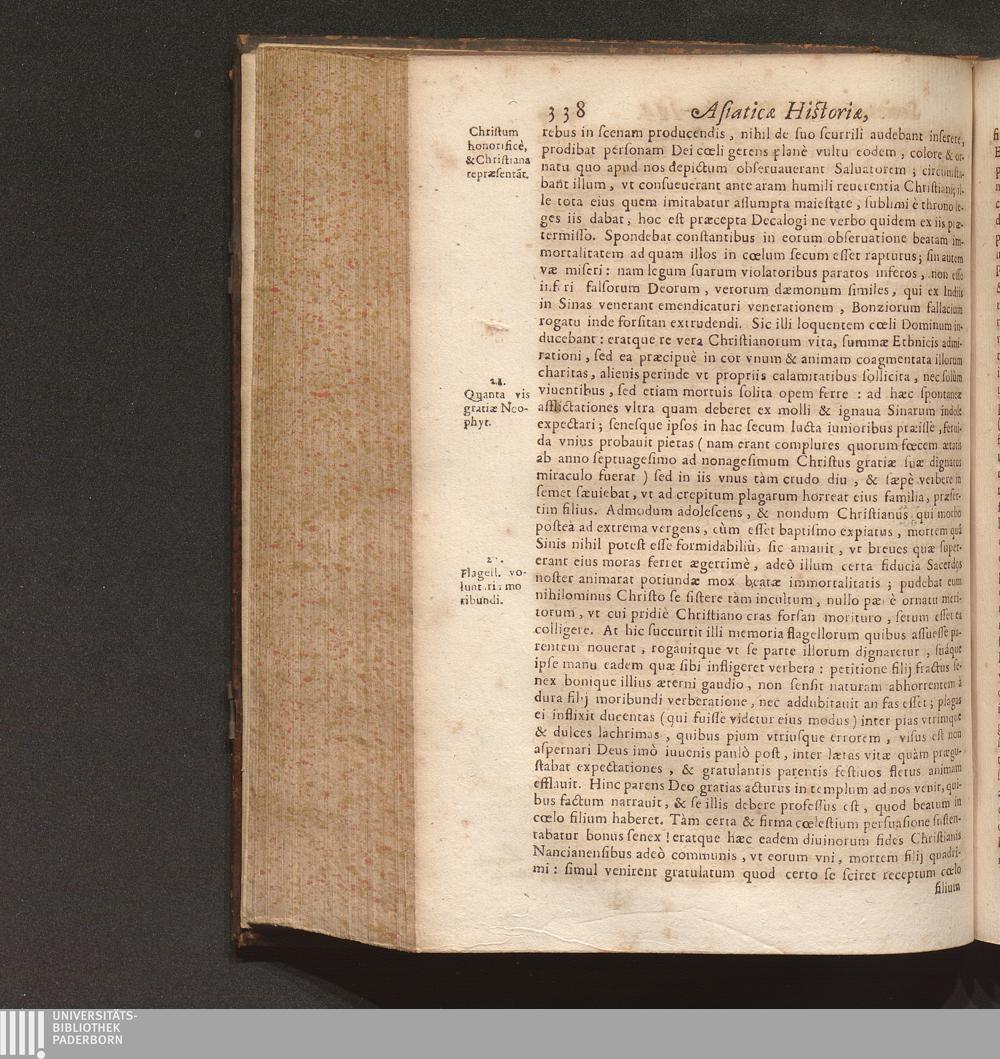 338 Asiaticæ Historiæ,
Christum
honorificè,
& Christiana
repræsentāt.
rebus in scenam producendis, nihil de suo scurrili audebant inserere,
prodibat personam Dei cœli gerens planè vultu eodem, colore & or-
natu quo apud nos depictum obseruauerant Saluatorem; circumsta-
bant illum, vt consueuerant ante aram humili reuerentia Christiani; il-
le tota eius quem imitabatur assumpta maiestate, sublimi è throno le-
ges iis dabat, hoc est præcepta Decalogi ne verbo quidem ex iis præ-
termisso. Spondebat constantibus in eorum obseruatione beatam im-
mortalitatem ad quam illos in cœlum secum esset rapturus; sin autem
væ miseri: nam legum suarum violatoribus paratos inferos, non esse
inferi falsorum Deorum, verorum dæmonum similes, qui ex Indiis
in Sinas venerant emendicaturi venerationem, Bonziorum fallacium
rogatu inde forsitan extrudendi. Sic illi loquentem cœli Dominum in-
ducebant: eratque re vera Christianorum vita, summæ Ethnicis admi-
rationi, sed ea præcipuè in cor vnum & animam coagmentata illorum
charitas, alienis perinde vt propriis calamitatibus sollicita, nec solùm
24.
Quanta vis
gratiæ Neo-
phyt.
viuentibus, sed etiam mortuis solita opem ferre: ad hæc spontaneæ
afflictationes vltra quam deberet ex molli & ignaua Sinarum indole
expectari; senesque ipsos in hac secum lucta iunioribus præisse, ferui-
da vnius probauit pietas (nam erant complures quorum fœcem ætatis
ab anno septuagesimo ad nonagesimum Christus gratiæ suæ dignatus
miraculo fuerat) sed in iis vnus tàm crudo diu, & sæpè verbere in
semet sæuiebat, vt ad crepitum plagarum horreat eius familia, præser-
tim filius. Admodum adolescens, & nondum Christianus qui morbo
posteà ad extrema vergens, cùm esset baptismo expiatus, mortem quâ
Sinis nihil potest esse formidabiliù, sic amauit, vt breues quæ super-
Flagell. vo-
luntarii mo
ribundi.
erant eius moras ferret ægerrimè, adeò illum certa fiducia Sacerdos
noster animarat potiundæ mox beatæ immortalitatis; pudebat eum
nihilominus Christo se sistere tàm incultum, nullo pæ è ornatu meri-
torum, vt cui pridiè Christiano cras forsan morituro, serum esset ea
colligere. At hic succurrit illi memoria flagellorum quibus assuesse pa-
rentem nouerat, rogauitque vt se parte illorum dignaretur, suâque
ipse manu eadem quæ sibi infligeret verbera: petitione filij fractus se-
nex bonique illius æterni gaudio, non sensit naturam abhorrentem à
dura filij moribundi verberatione, nec addubitauit an fas esset; plagas
ei inflixit ducentas (qui fuisse videtur eius modus) inter pias vtrimque
& dulces lachrimas, quibus pium vtriusque errorem, visus est non
aspernari Deus imò iuuenis paulò post, inter lætas vitæ quàm prægu-
stabat expectationes, & gratulantis parentis festiuos fletus animam
efflauit. Hinc parens Deo gratias acturus in templum ad nos venit, qui-
bus factum narrauit, & se illis debere professus est, quod beatum in
cœlo filium haberet. Tàm certa & firma cœlestium persuasione susten-
tabatur bonus senex! eratque hæc eadem diuinorum fides Christianis
Nancianensibus adeò communis, vt eorum vni, mortem filij quadri-
mi: simul venirent gratulatum quod certo se sciret receptum cœlo
filium
UNIVERSITÄTS-
BIBLIOTHEK
PADERBORN